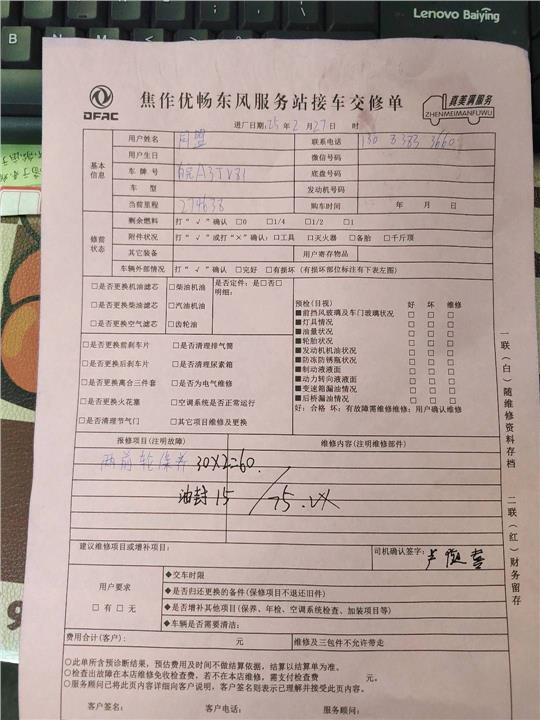 Lenovo Baiying
DFAC
焦作优畅东风服务站接车交修单
真美满服务
ZHENMEIMANFUWU
进厂日期:25 年 2 月 27 日 时
基本信息
用户姓名 联系电话
用户生日 微信号码
车 牌 号 皖A3JV81 底盘号码
车 型 发动机号码
当前里程 274638 购车时间 年 月 日
修前状态
剩余燃料 打“√”确认 □0 □1/4 □1/2 □1
附件状况 打“√”或打“×”确认:□工具 □灭火器 □备胎 □千斤顶
其它装备 用户寄存物品
车辆外部情况 打“√”确认 □完好 □有损坏(有损坏部位标注有下表左图)
□是否更换机油滤芯 □柴油机油 是否定件:是□否□
明细:
□是否更换柴油滤芯 □汽油机油
□是否更换空气滤芯 □齿轮油
□是否更换前刹车片 □是否清理排气筒
□是否更换后刹车片 □是否清理尿素箱
□是否更换离合三件套 □是否为电气维修
□是否更换火花塞 □空调系统是否正常运行
□是否清理节气门 □其它项目维修及更换
预检(目视) 好 坏 维修
■前挡风玻璃及车门玻璃状况 □ □ □
■灯具情况 □ □ □
■油量状况 □ □ □
■轮胎状况 □ □ □
■发动机机油状况 □ □ □
■防冻防锈瓶状况 □ □ □
■制动液液面 □ □ □
■动力转向液液面 □ □ □
■变速箱漏油情况 □ □ □
■后桥漏油情况 □ □ □
好:合格 坏:有故障需维修维修:用户确认维修
报修项目(注明故障) 维修内容(注明维修部件)
两前轮保养 30×2=60.
油封 15 75.
建议维修项目或增补项目: 司机确认签字:
用户要求
□有 □无
◆交车时限
◆是否归还更换的备件(保修项目不退还旧件)
◆是否增补其他项目(保养、年检、空调系统检查、加装项目等)
◆车辆是否需要清洁:
费用合计(客户): 元 维修及三包件不允许带走
○此单所含预诊断结果,预估费用及时间不做结算依据,结算以结算单为准。
○检查出故障在本店维修免收检查费,若不在本店维修,需支付检查费 元。
○服务顾问已将此页内容详细向客户说明,客户签名则表示已理解并接受此页内容。
客户签名: 客户电话: 服务顾问:
一联(白)随维修资料存档 二联(红)财务留存